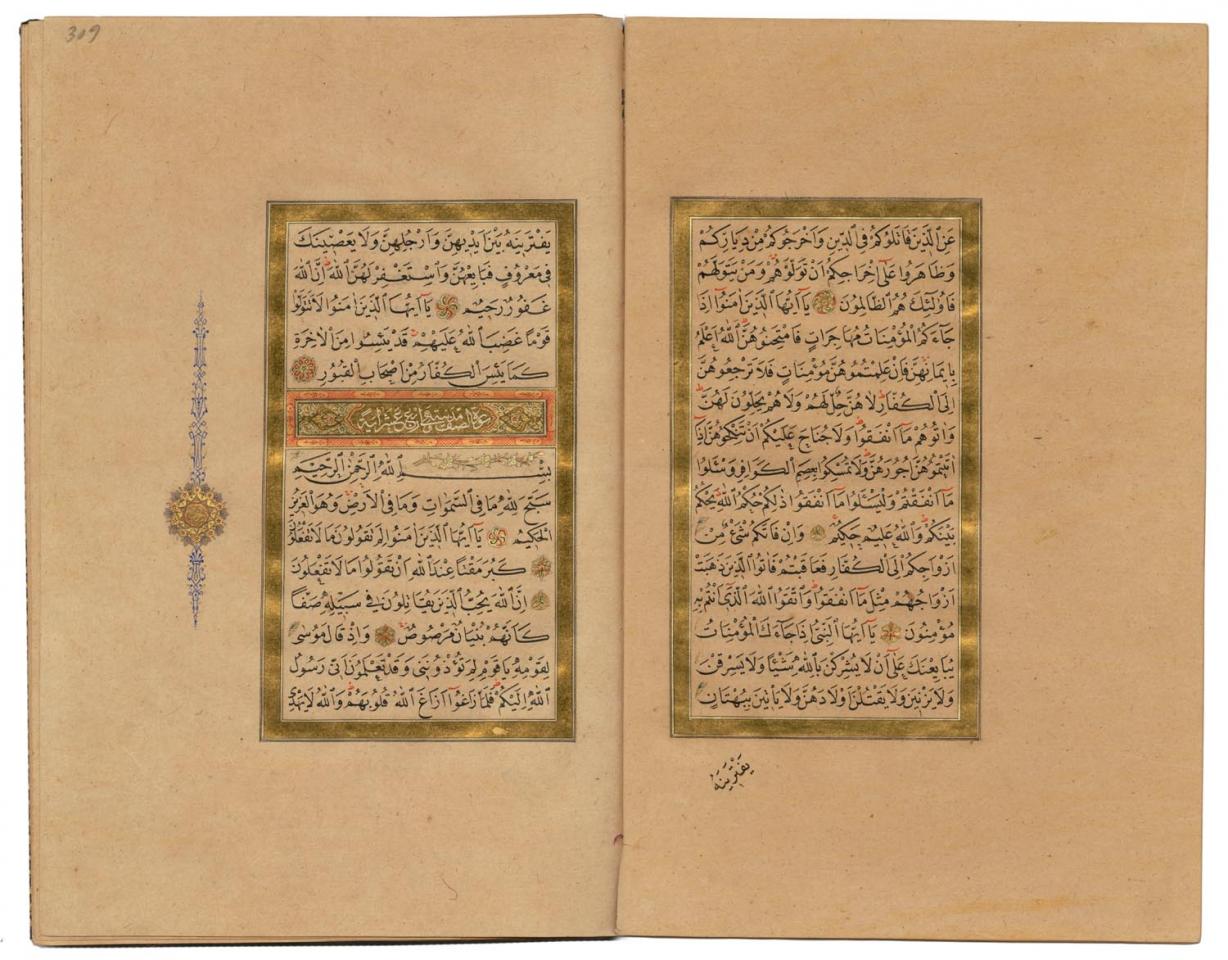 عَنِ الَّذِينَ قَاتَلُوكُمْ فِي الدِّينِ وَاَخْرَجُوكُمْ مِنْ دِيَارِكُمْ
وَظَاهَرُوا عَلٰٓى اِخْرَاجِكُمْ اَنْ تَوَلَّوْهُمْ وَمَنْ يَتَوَلَّهُمْ
فَاُولٰٓئِكَ هُمُ الظَّالِمُونَ يَٓا اَيُّهَا الَّذِينَ اٰمَنُٓوا اِذَا
جَٓاءَكُمُ الْمُؤْمِنَاتُ مُهَاجِرَاتٍ فَامْتَحِنُوهُنَّ اَللّٰهُ اَعْلَمُ
بِاِيمَانِهِنَّ فَاِنْ عَلِمْتُمُوهُنَّ مُؤْمِنَاتٍ فَلَا تَرْجِعُوهُنَّ
اِلَى الْكُفَّارِ لَا هُنَّ حِلٌّ لَهُمْ وَلَا هُمْ يَحِلُّونَ لَهُنَّ
وَاٰتُوهُمْ مَٓا اَنْفَقُوا وَلَا جُنَاحَ عَلَيْكُمْ اَنْ تَنْكِحُوهُنَّ اِذَٓا
اٰتَيْتُمُوهُنَّ اُجُورَهُنَّ وَلَا تُمْسِكُوا بِعِصَمِ الْكَوَافِرِ وَسْـَٔلُوا
مَٓا اَنْفَقْتُمْ وَلْيَسْـَٔلُوا مَٓا اَنْفَقُوا ذٰلِكُمْ حُكْمُ اللّٰهِ يَحْكُمُ
بَيْنَكُمْ وَاللّٰهُ عَلِيمٌ حَكِيمٌ وَاِنْ فَاتَكُمْ شَيْءٌ مِنْ
اَزْوَاجِكُمْ اِلَى الْكُفَّارِ فَعَاقَبْتُمْ فَاٰتُوا الَّذِينَ ذَهَبَتْ
اَزْوَاجُهُمْ مِثْلَ مَٓا اَنْفَقُوا وَاتَّقُوا اللّٰهَ الَّذِٓي اَنْتُمْ بِهِ
مُؤْمِنُونَ يَٓا اَيُّهَا النَّبِيُّ اِذَا جَٓاءَكَ الْمُؤْمِنَاتُ
يُبَايِعْنَكَ عَلٰٓى اَنْ لَا يُشْرِكْنَ بِاللّٰهِ شَيْئًا وَلَا يَسْرِقْنَ
وَلَا يَزْنِينَ وَلَا يَقْتُلْنَ اَوْلَادَهُنَّ وَلَا يَأْتِينَ بِبُهْتَانٍ
يَفْتَرِينَهُ
309
يَفْتَرِينَهُ بَيْنَ اَيْدِيهِنَّ وَاَرْجُلِهِنَّ وَلَا يَعْصِينَكَ
فِي مَعْرُوفٍ فَبَايِعْهُنَّ وَاسْتَغْفِرْ لَهُنَّ اللّٰهَ اِنَّ اللّٰهَ
غَفُورٌ رَحِيمٌ يَٓا اَيُّهَا الَّذِينَ اٰمَنُوا لَا تَتَوَلَّوْا
قَوْمًا غَضِبَ اللّٰهُ عَلَيْهِمْ قَدْ يَئِسُوا مِنَ الْاٰخِرَةِ
كَمَا يَئِسَ الْكُفَّارُ مِنْ اَصْحَابِ الْقُبُورِ
سورة الصف مدنية وهي اربع عشر اية
بِسْمِ اللّٰهِ الرَّحْمٰنِ الرَّحِيمِ
سَبَّحَ لِلّٰهِ مَا فِي السَّمٰوَاتِ وَمَا فِي الْاَرْضِ وَهُوَ الْعَزِيزُ
الْحَكِيمُ يَٓا اَيُّهَا الَّذِينَ اٰمَنُوا لِمَ تَقُولُونَ مَا لَا تَفْعَلُونَ
كَبُرَ مَقْتًا عِنْدَ اللّٰهِ اَنْ تَقُولُوا مَا لَا تَفْعَلُونَ
اِنَّ اللّٰهَ يُحِبُّ الَّذِينَ يُقَاتِلُونَ فِي سَبِيلِهِ صَفًّا
كَاَنَّهُمْ بُنْيَانٌ مَرْصُوصٌ وَاِذْ قَالَ مُوسٰى
لِقَوْمِهِ يَا قَوْمِ لِمَ تُؤْذُونَنِي وَقَدْ تَعْلَمُونَ اَنِّي رَسُولُ
اللّٰهِ اِلَيْكُمْ فَلَمَّا زَاغُٓوا اَزَاغَ اللّٰهُ قُلُوبَهُمْ وَاللّٰهُ لَا يَهْدِي